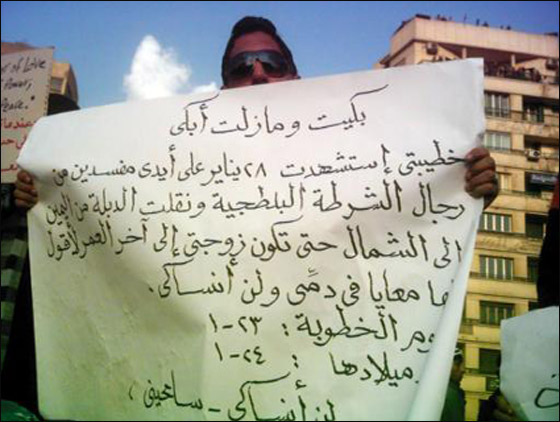 بكيت ومازلت أبكى
خطيبتى إستشهدت ٢٨ يناير على أيدى مفسدين من
رجال الشرطة البلطجية ونقلت الدبلة من اليمين
إلى الشمال حتى تكون زوجتى إلى أخر العمر لأقول
معايا فى دمِّى ولن أنساكى.
يوم الخطوبة : ٢٣-١
ميلادها : ٢٤-١
لن أنساكى - سامحينى ،
of Love
Power,
Peace."
عندما